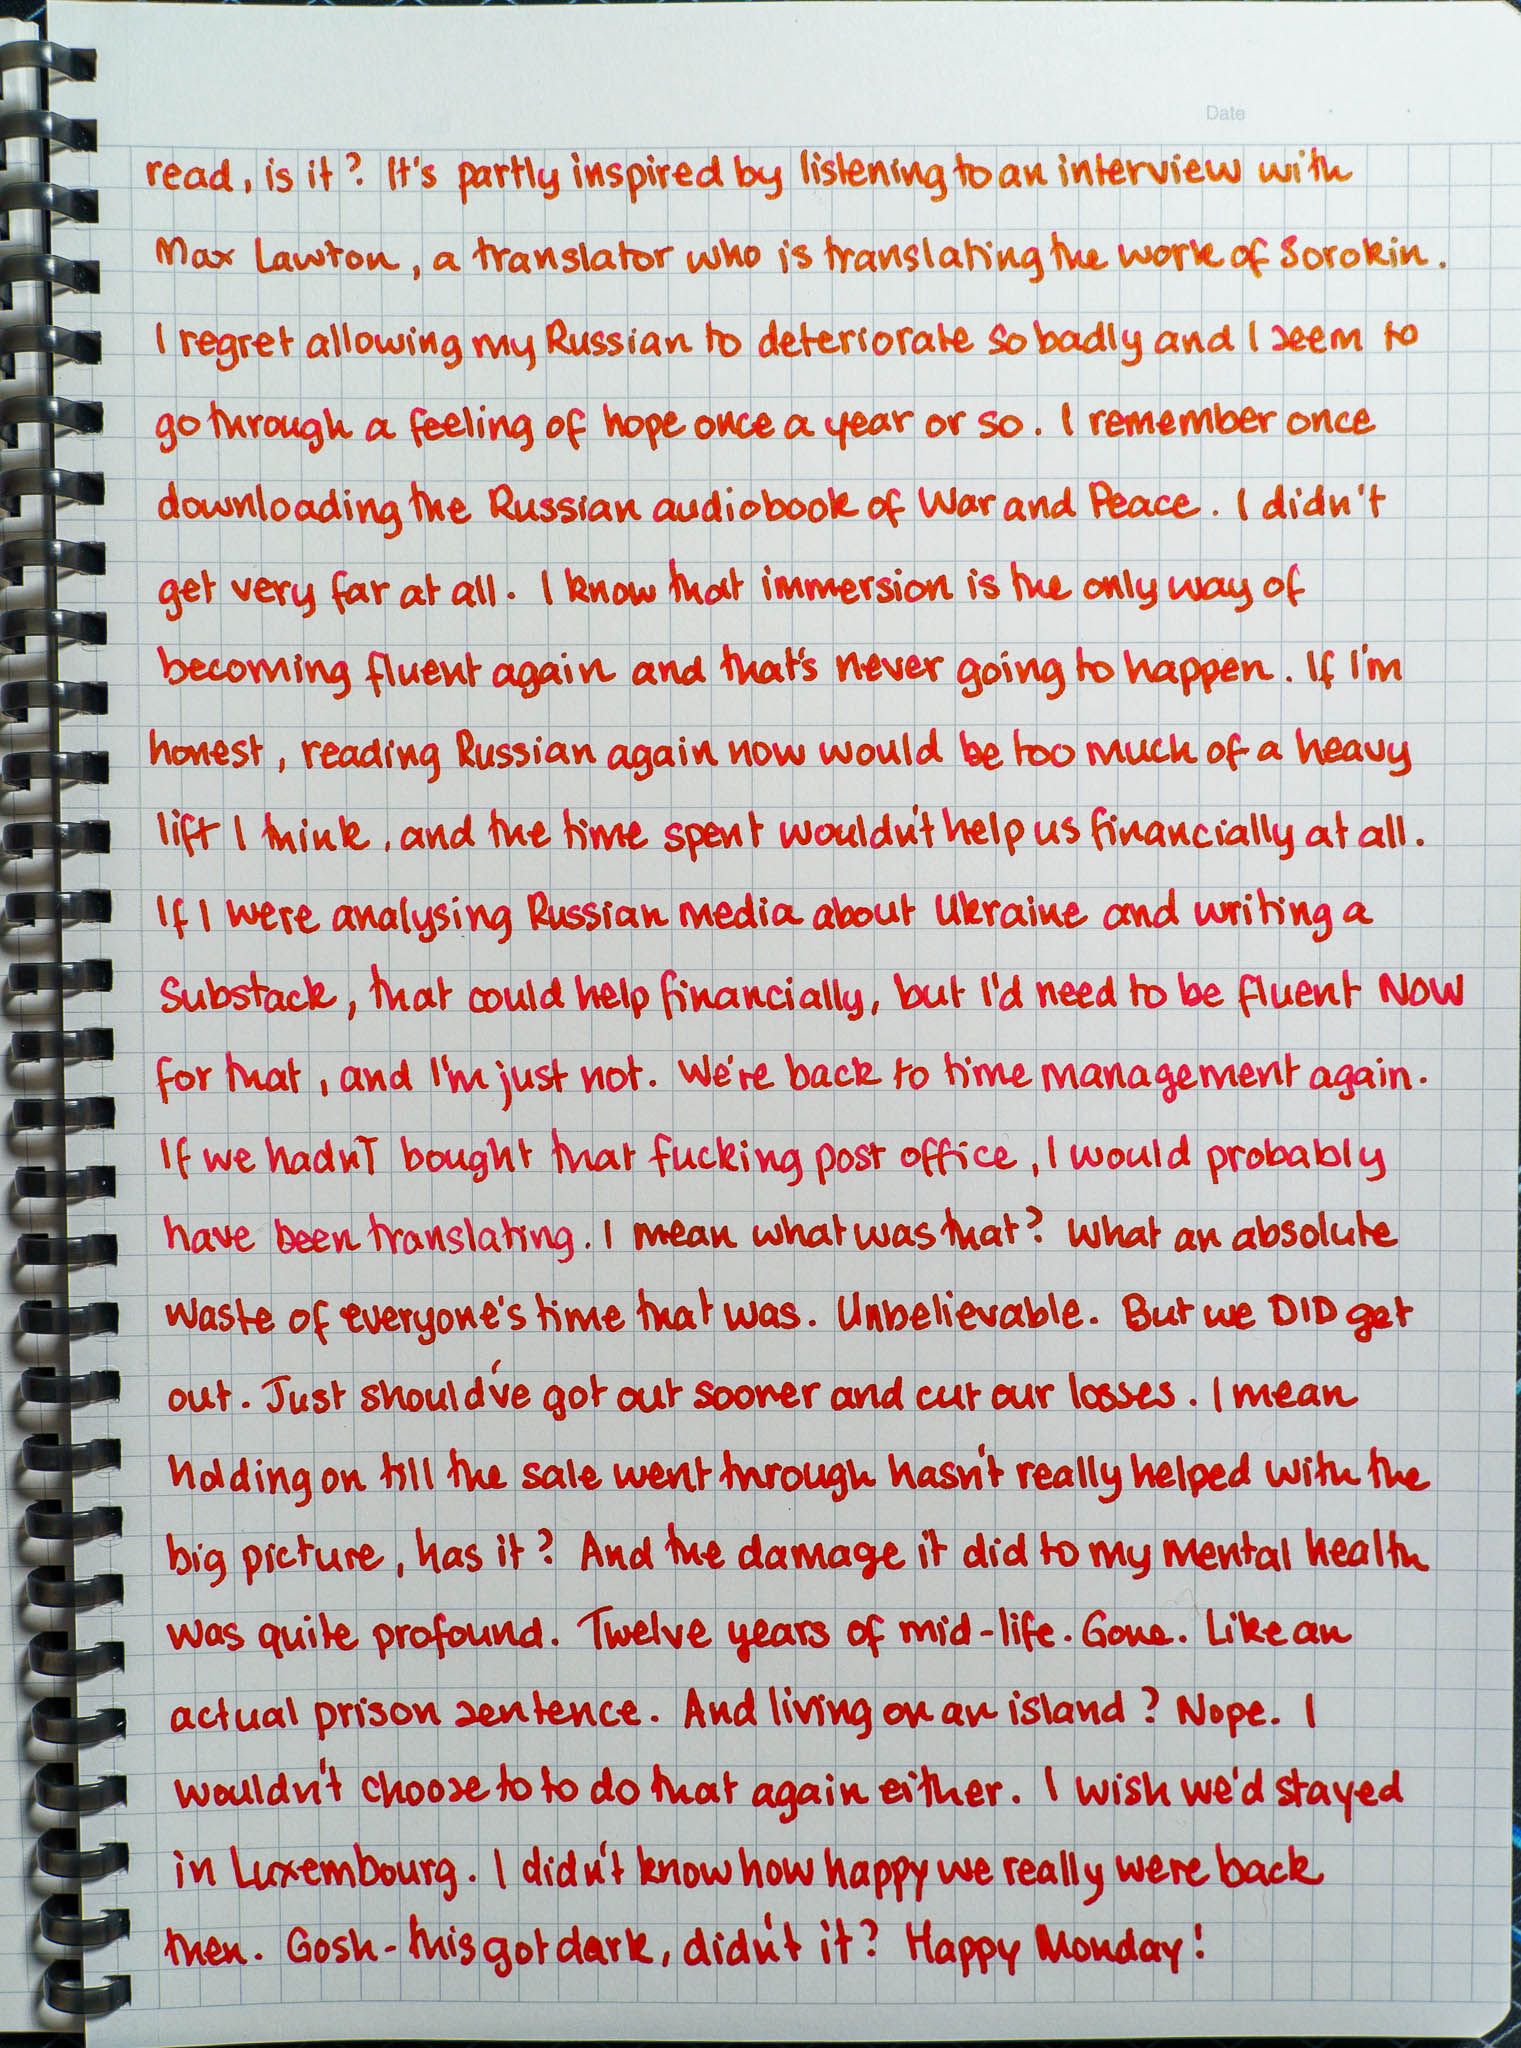 Date
read, is it? It's partly inspired by listening to an interview with
Max Lawton, a translator who is translating the work of Sorokin.
I regret allowing my Russian to deteriorate so badly and I seem to
go through a feeling of hope once a year or so. I remember once
downloading the Russian audiobook of War and Peace. I didn't
get very far at all. I know that immersion is the only way of
becoming fluent again and that's never going to happen. If I'm
honest, reading Russian again now would be too much of a heavy
lift I think, and the time spent wouldn't help us financially at all.
If I were analysing Russian media about Ukraine and writing a
Substack, that could help financially, but I'd need to be fluent NOW
for that, and I'm just not. We're back to time management again.
If we hadn't bought that fucking post office, I would probably
have been translating. I mean what was that? What an absolute
waste of everyone's time that was. Unbelievable. But we DID get
out. Just should've got out sooner and cut our losses. I mean
holding on till the sale went through hasn't really helped with the
big picture, has it? And the damage it did to my mental health
was quite profound. Twelve years of mid-life. Gone. Like an
actual prison sentence. And living on an island? Nope. I
wouldn't choose to to do that again either. I wish we'd stayed
in Luxembourg. I didn't know how happy we really were back
then. Gosh - this got dark, didn't it? Happy Monday!